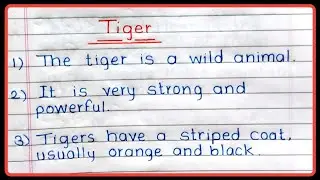 Tiger
1) The tiger is a wild animal.
2) It is very strong and
powerful.
3) Tigers have a striped coat,
usually orange and black.